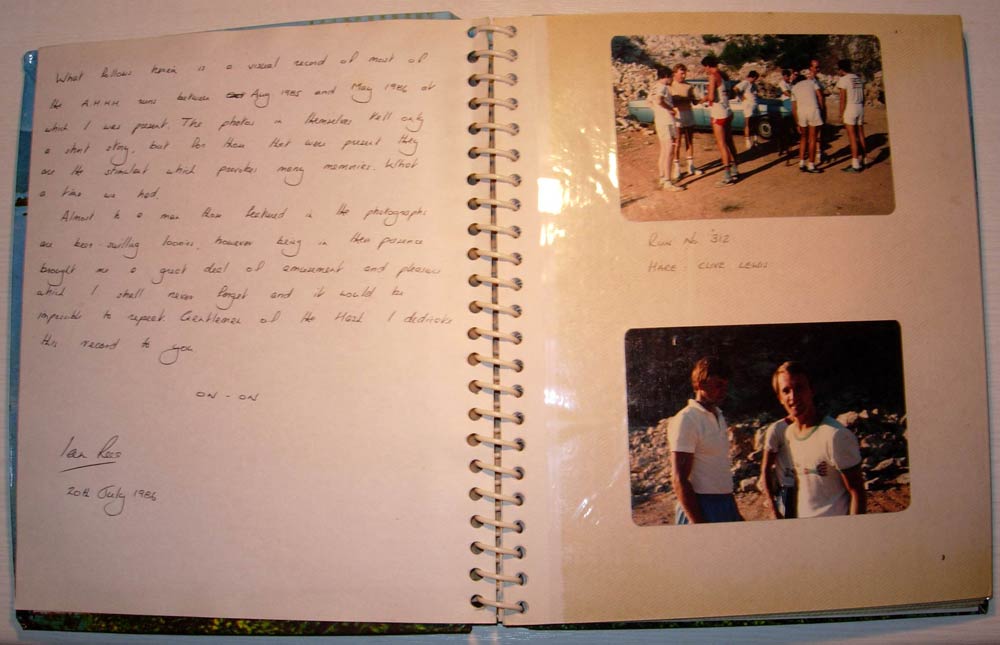 What follows herein is a visual record of most of
the A.H.H.H. runs between Aug 1985 and May 1986 at
which I was present. The photos in themselves tell only
a short story, but for those that were present they
are the stimulant which provokes many memories. What
a time we had.
Almost to a man those featured in the photographs
are beer-swilling loonies, however being in their presence
brought me a great deal of amusement and pleasure
which I shall never forget and it would be
impossible to repeat. Gentlemen of the Hash I dedicate
this record to you
ON - ON
Ian Rees
20th July 1986
RUN No 312
HARE - CLIVE LEWIS